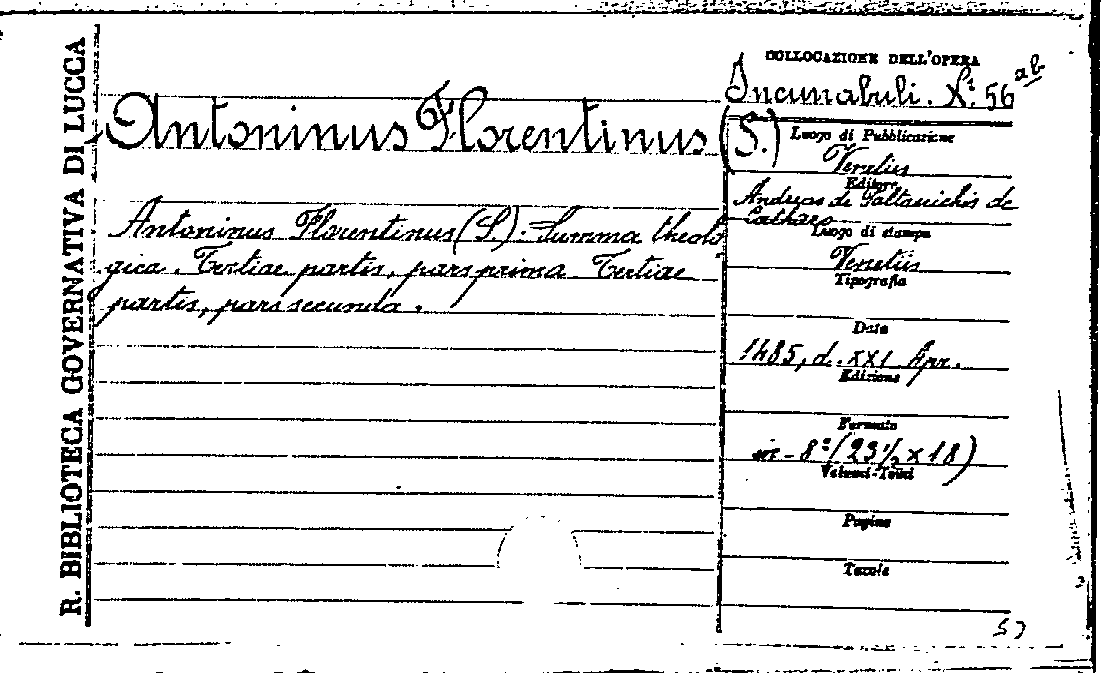 R. BIBLIOTECA GOVERNATIVA DI LUCCA
Antoninus Florentinus (S.)
Antoninus Florentinus (S.). Summa theolo
gica. Tertiae partis, pars prima. Tertiae
partis, pars secunda.
COLLOCAZIONE DELL'OPERA
Incunabuli. N.º 56 ab
Luogo di Pubblicazione
Venetiis
Editore
Andreas de Paltasichis de
Catharo
Luogo di stampa
Venetiis
Tipografia
Data
1485, d. XXI Apr.
Edizione
Formato
in-8º (23 1/2 x 18)
Volumi-Tomi
Pagine
Tavole
57